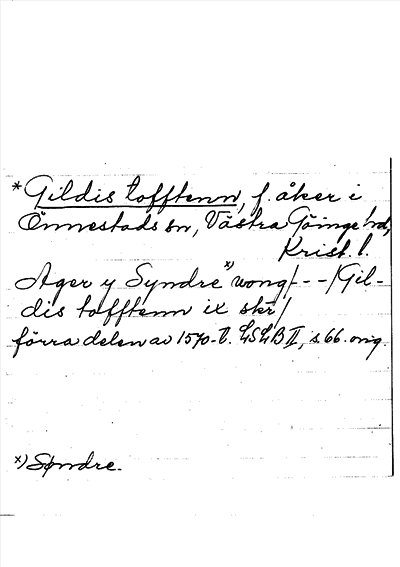 * Gildis tofftenn, f. åker i
Önnestads sn, Västra Göinge hd,
Krist. l.
Ager y Syndre x) wong /- - -/ Gil-
dis tofftenn ix skr /
förra delen av 1570-t. LSLB II, s 66. orig.
x) Søndre.